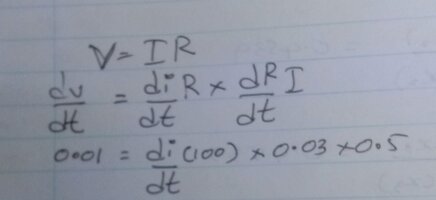 V = IR
dv/dt = di/dt R × dR/dt I
0.01 = di/dt (100) × 0.03 × 0.5